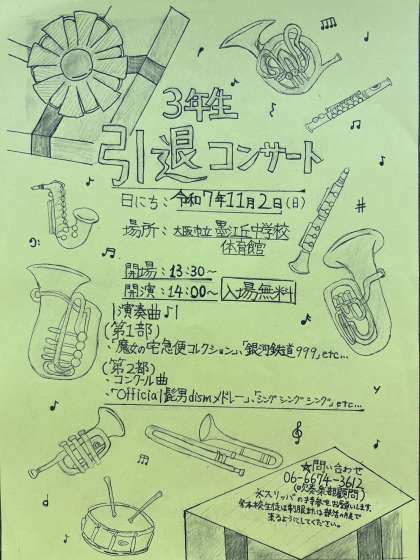 3年生
引退コンサート
日にち：令和7年11月2日(日)
場所：大阪市立 墨江丘中学校
体育館
開場：13:30〜
開演：14:00〜 入場無料
演奏曲♪
(第1部)
・「魔女の宅急便コレクション」、「銀河鉄道999」etc...
(第2部)
・コンクール曲
・「Official髭男dismメドレー」、「シング シング シング」etc...
☆問い合わせ
06-6674-3612
(吹奏楽部顧問)
※スリッパの持参をお願いします。
※本校生徒は制服または部活の服で
来るようにしてください。